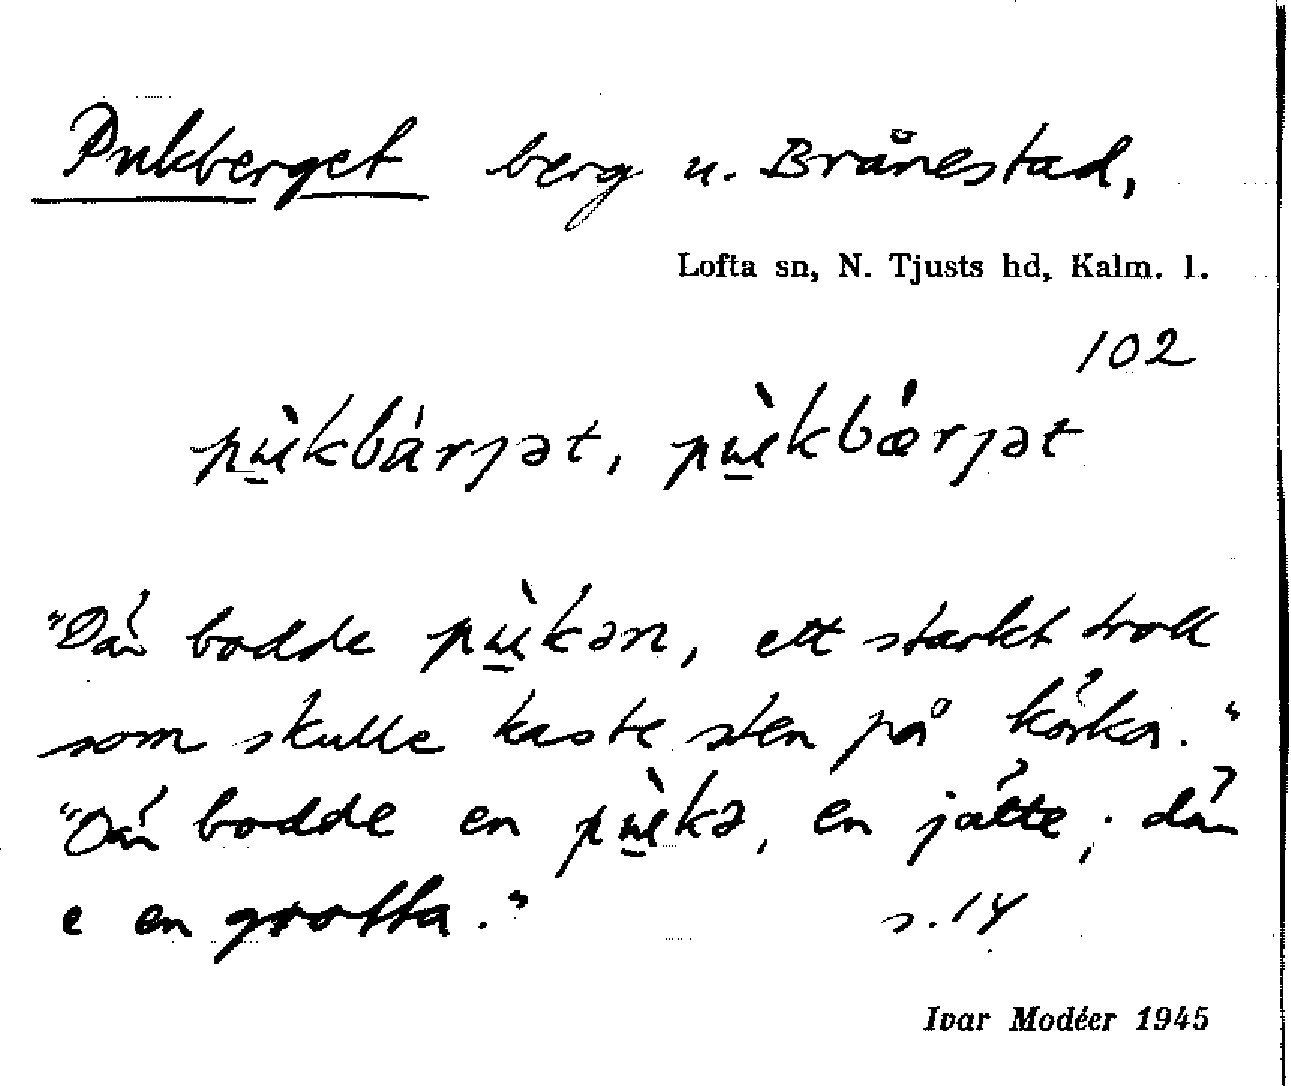 Pukberget berg u. Brånestad,
Lofta sn, N. Tjusts hd, Kalm. l.
102
pɯ̀kbárjət, pɯ̀kbǽrjət
"Där bodde pɯ̀kən, ett starkt troll
som skulle kaste sten på körka."
"Där bodde en pɯ̀kə, en jätte; där
e en grotta." s. 14
Ivar Modéer 1945